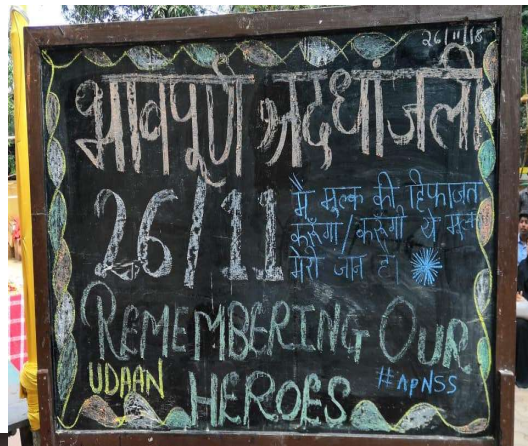 26/11/18
भावपूर्ण श्रद्धांजली
26/11
मैं मुल्क की हिफाजत
करूँगा/करूँगी ये मुल्क
मेरी जान है।
REMEMBERING OUR
UDAAN HEROES #npNSS